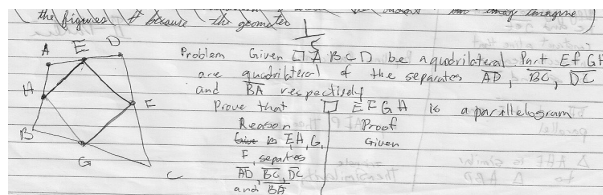 the figures it because the geometer
A E D
Problem Given □ A B C D be a quadrilateral Part E f G H
are quadrilateral of the separates AD, BC, DC
and BA respectively
H F
Prove that □ E F G H is a parallelogram
Reason Proof
B
E H, G, Given
G F, separates
AD BC, DC
C
and BA